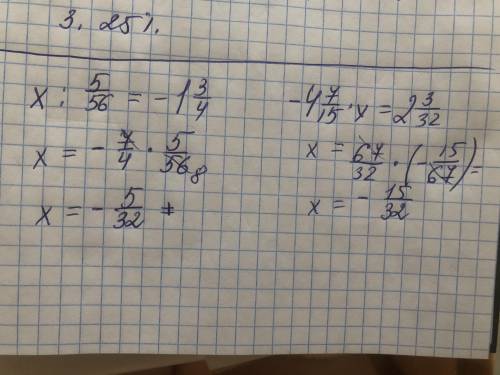 3. 25%.
x : 5/56 = - 1 3/4
x = - 7/4 · 5/56 8
x = - 5/32
- 4 7/15 · x = 2 3/32
x = 67/32 · (- 15/67) =
x = - 15/32